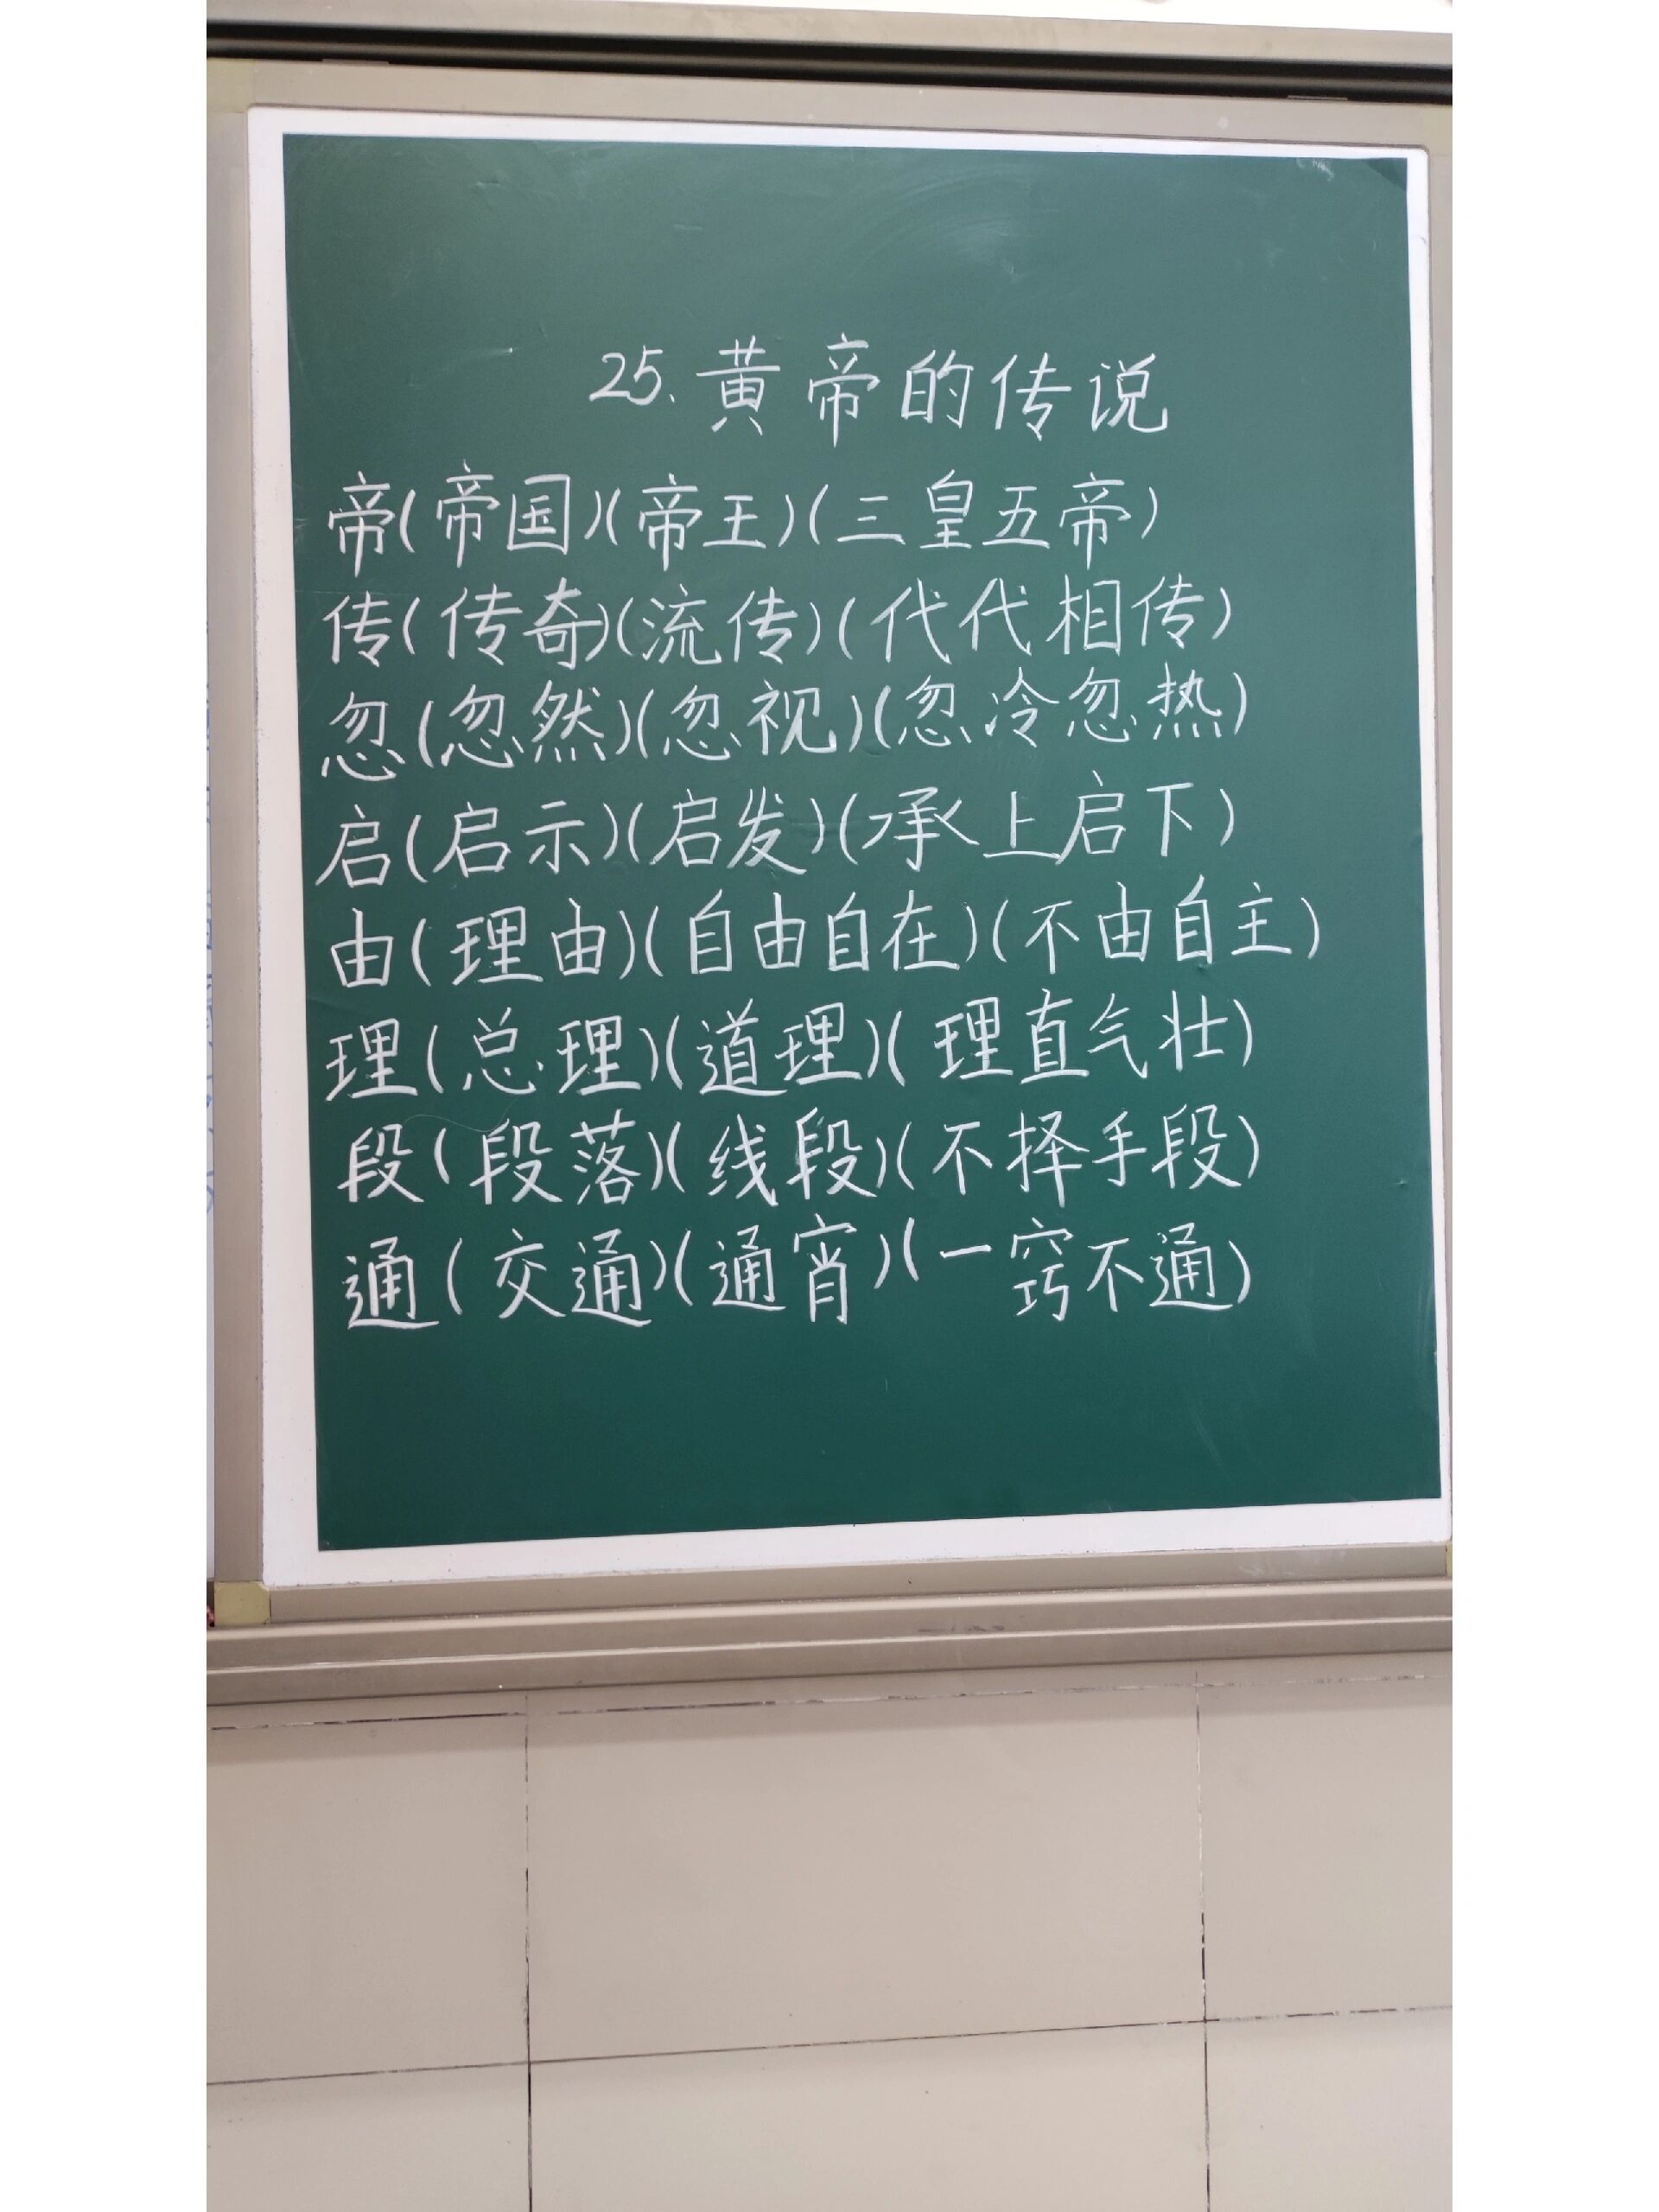 25.黄帝的传说
帝(帝国)(帝王)(三皇五帝)
传(传奇)(流传)(代代相传)
忽(忽然)(忽视)(忽冷忽热)
启(启示)(启发)(承上启下)
由(理由)(自由自在)(不由自主)
理(总理)(道理)(理直气壮)
段(段落)(线段)(不择手段)
通(交通)(通宵)(一窍不通)